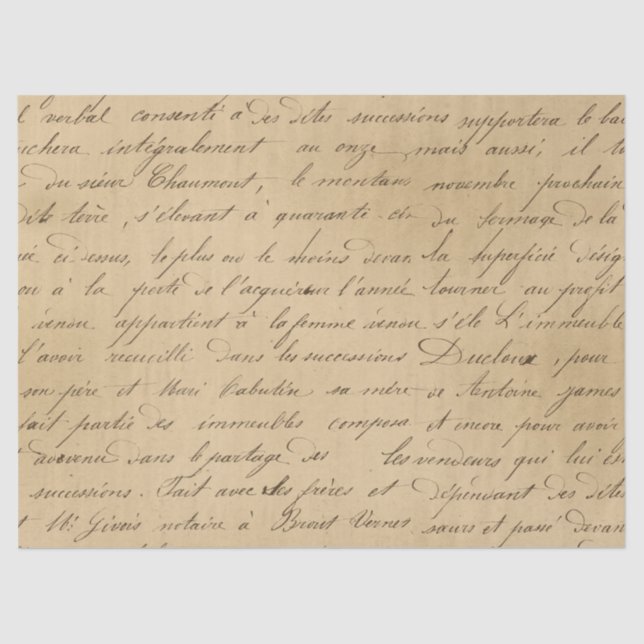 verbal consenti à des dites successions supportera le
intégralement au onze, mais aussi, il
du sieur Chaumont, le montans novembre prochain
dite terre, s'élevant à quarante cin du fermage de la
ci-dessus, le plus ou le moins devan la superficié désig
ou à la perte de l'acquéreur l'année tourner au profit
venou appartient à la femme venou s'éle L'immeuble
l'avoir recueilli dans les successions Ducloux, pour
son père et Mari Cabutin sa mère de Antoine james
fait partie des immeubles composa et encore pour avoir
avevenu dans le partage des les vendeurs qui lui
successions. Fait avec les frères et dépendant des dites
Mr. Givois notaire à Brout Vernes sœurs et passé devan